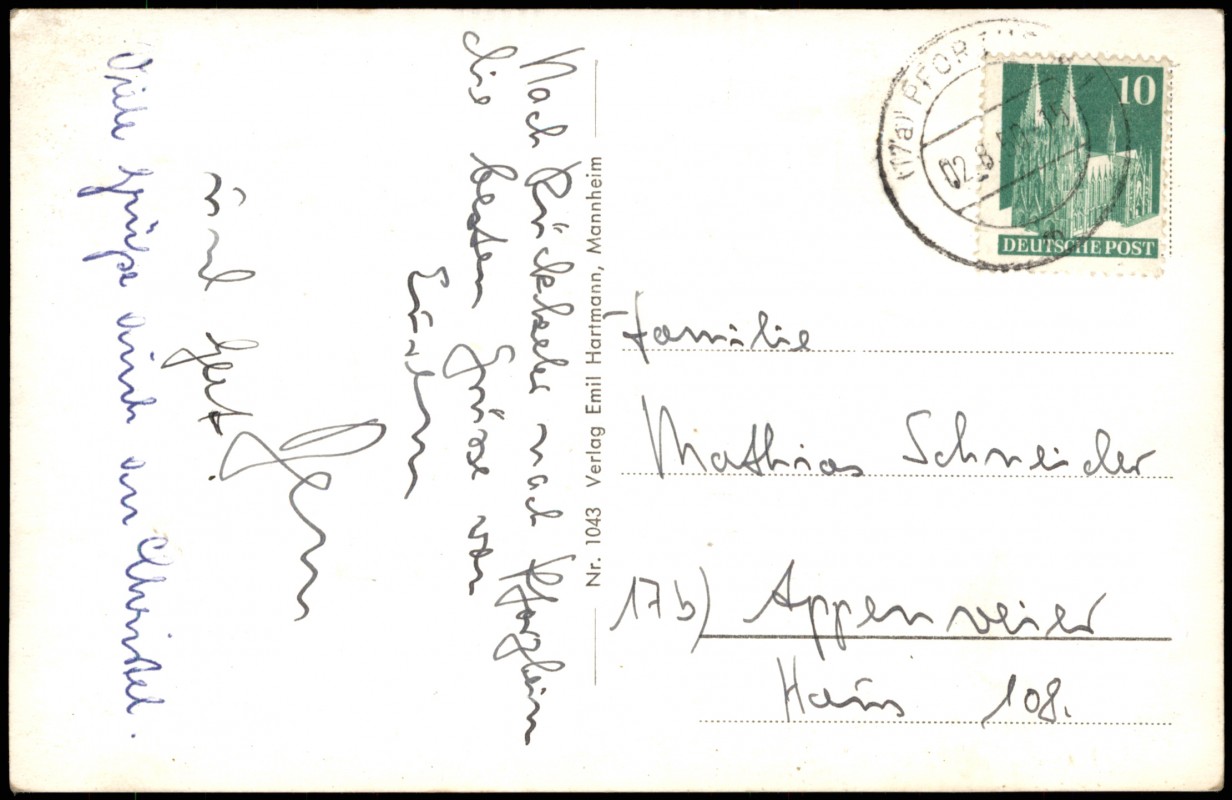 Nach Rückkehr nach Pforzheim
die besten Grüße von
Eurem
und Gert.
Viele Grüße auch von Christel.
Nr. 1043 Verlag Emil Hartmann, Mannheim
(17a) PFORZHEIM
02.8.50.-15
10
DEUTSCHE POST
Familie
Mathias Schneider
17b) Appenweier
Haus 108.